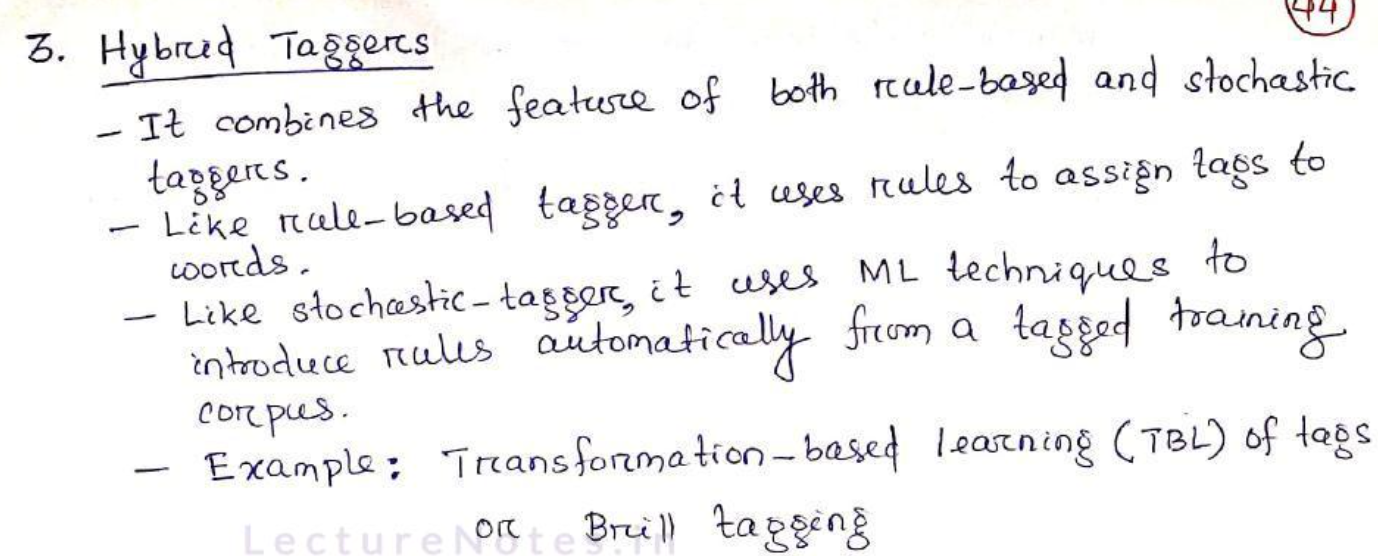 44
3. Hybrid Taggers
- It combines the feature of both rule-based and stochastic
taggers.
- Like rule-based tagger, it uses rules to assign tags to
words.
- Like stochastic-tagger, it uses ML techniques to
introduce rules automatically from a tagged training
corpus.
- Example: Transformation-based learning (TBL) of tags
or Brill tagging
LectureNotes.in